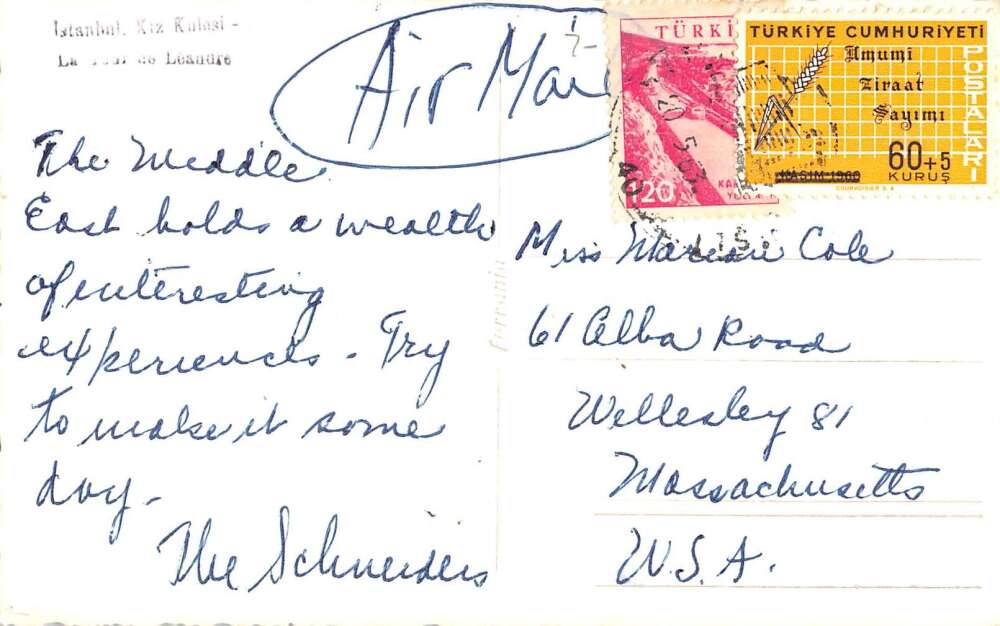 İstanbul. Kız Kulesi -
La Tour de Léandre
Air Mail
The Middle
East holds a wealth
of interesting
experiences - Try
to make it some
day -
The Schneiders
TÜRKİ
120
TÜRKİYE CUMHURİYETİ
POSTALARI
Umumi
Ziraat
Sayımı
60+5
KURUŞ
KASIM-1960
COURVOISIER S.A.
Miss Marian Cole
61 Alba Road
Wellesley 81
Massachusetts
U.S.A.